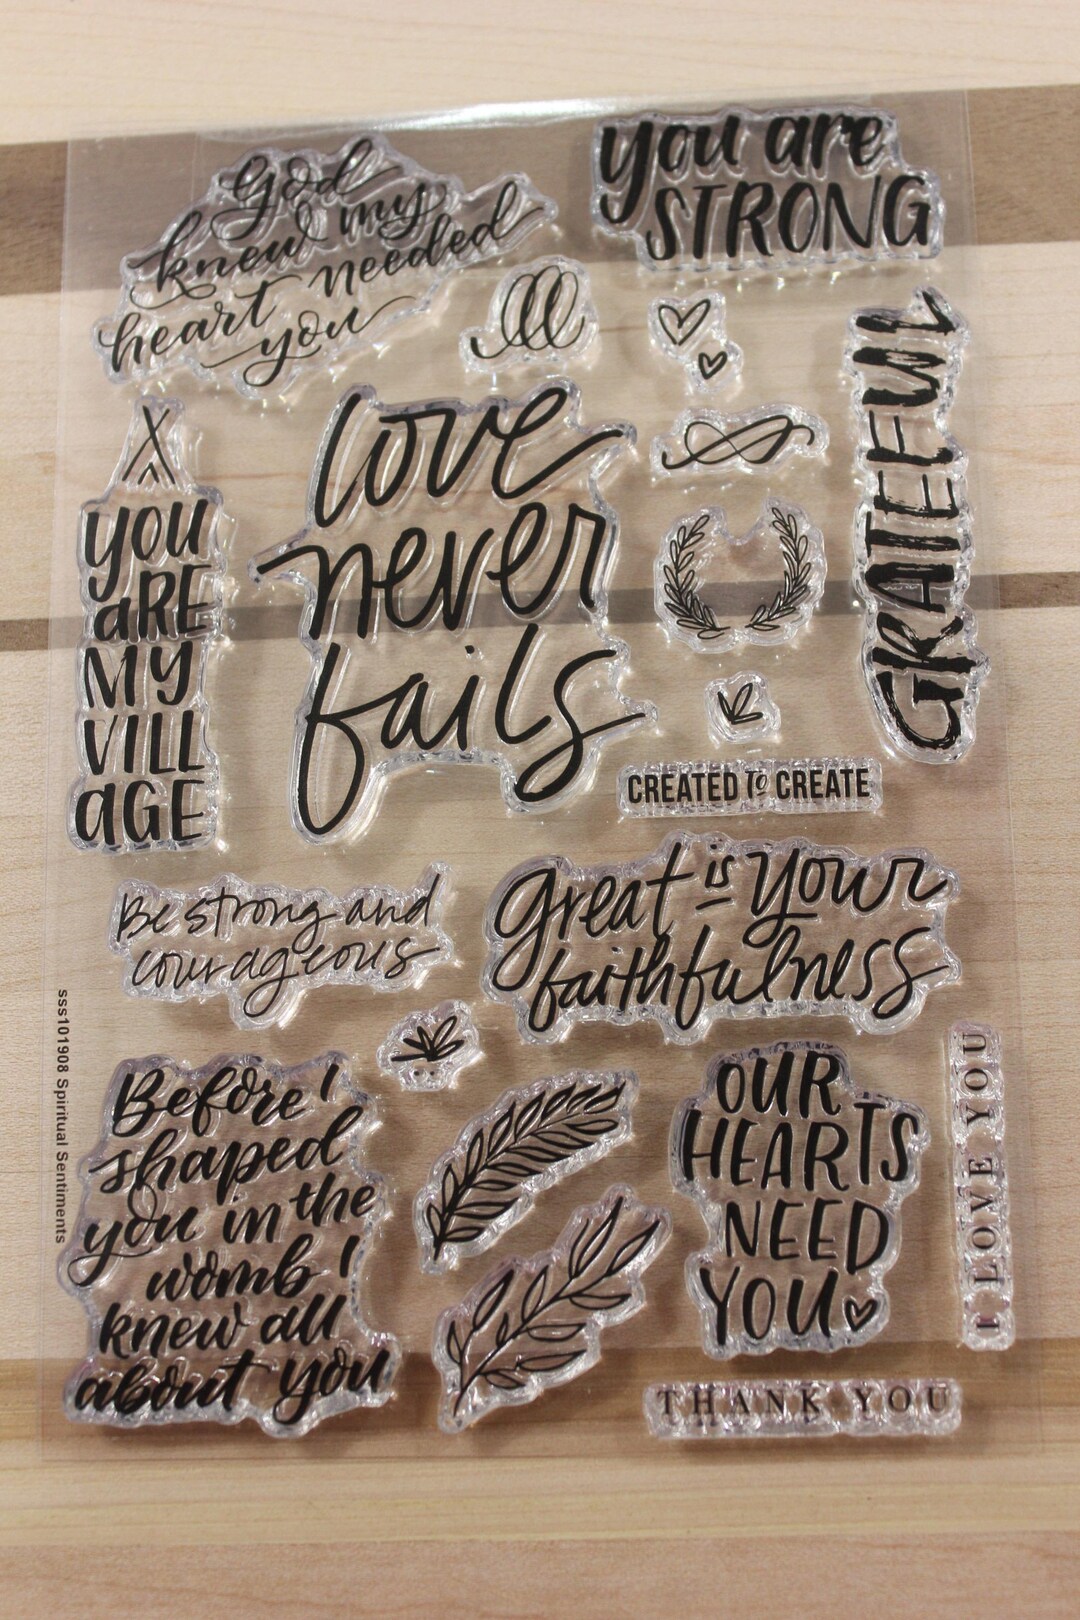 God
knew my
heart needed
you
you are
STRONG
GRATEFUL
love
never
fails
you
aRE
MY
VILL
aGE
CREATED TO CREATE
Be strong and
courageous
Great is Your
faithfulness
sss101908 Spiritual Sentiments
Before I
shaped
you in the
womb I
knew all
about you
OUR
HEARTS
NEED
YOU
I LOVE YOU
THANK YOU